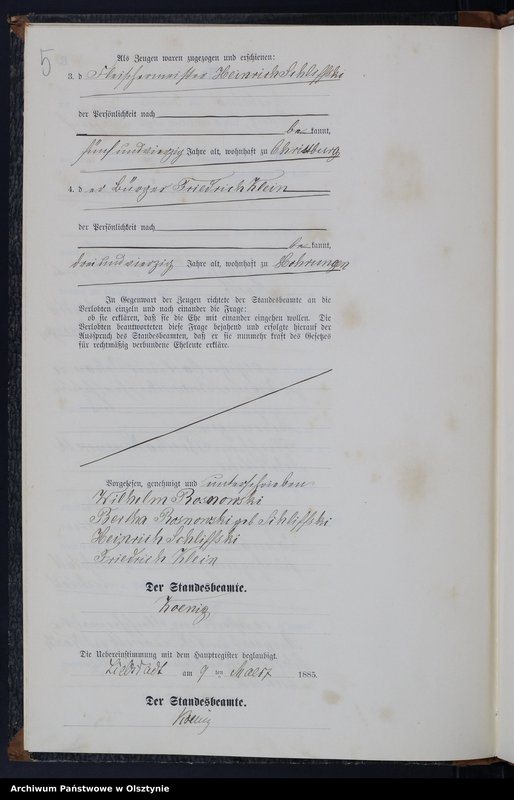 5
Als Zeugen waren zugezogen und erschienen:
3. d Fleischermeister Heinrich Schliffski
der Persönlichkeit nach
be kannt,
fünfundvierzig Jahre alt, wohnhaft zu Christburg
4. d er Bürger Friedrich Klein
der Persönlichkeit nach
be kannt,
dreiundvierzig Jahre alt, wohnhaft zu Mohrungen
In Gegenwart der Zeugen richtete der Standesbeamte an die
Verlobten einzeln und nach einander die Frage:
ob sie erklären, daß sie die Ehe mit einander eingehen wollen. Die
Verlobten beantworteten diese Frage bejahend und erfolgte hierauf der
Ausspruch des Standesbeamten, daß er sie nunmehr kraft des Gesetzes
für rechtmäßig verbundene Eheleute erkläre.
Vorgelesen, genehmigt und unterschrieben
Wilhelm Rosnowski
Bertha Rosnowski geb. Schliffski
Heinrich Schliffski
Friedrich Klein
Der Standesbeamte.
Koenig
Die Uebereinstimmung mit dem Hauptregister beglaubigt.
Liebstadt am 9 ten Maerz 1885.
Der Standesbeamte.
Koenig
Archiwum Państwowe w Olsztynie